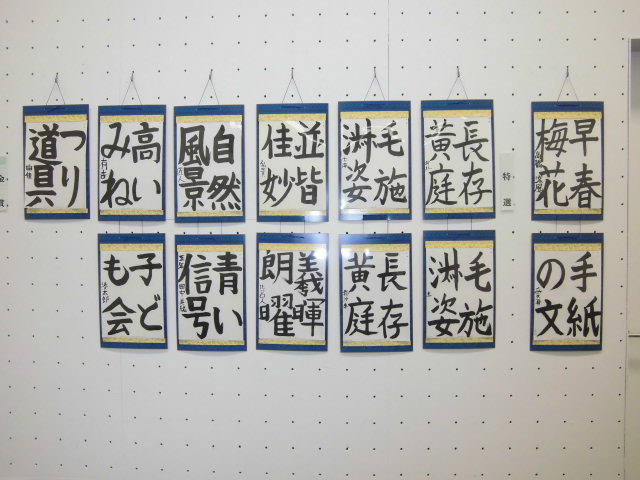 早春
梅花
特選
長存
黄庭
毛施
淑姿
並皆
佳妙
自然
風景
高い
みね
つり
道具
手紙
の文
毛施
淑姿
長存
黄庭
羲暉
朗曜
青い
信号
子ど
も会